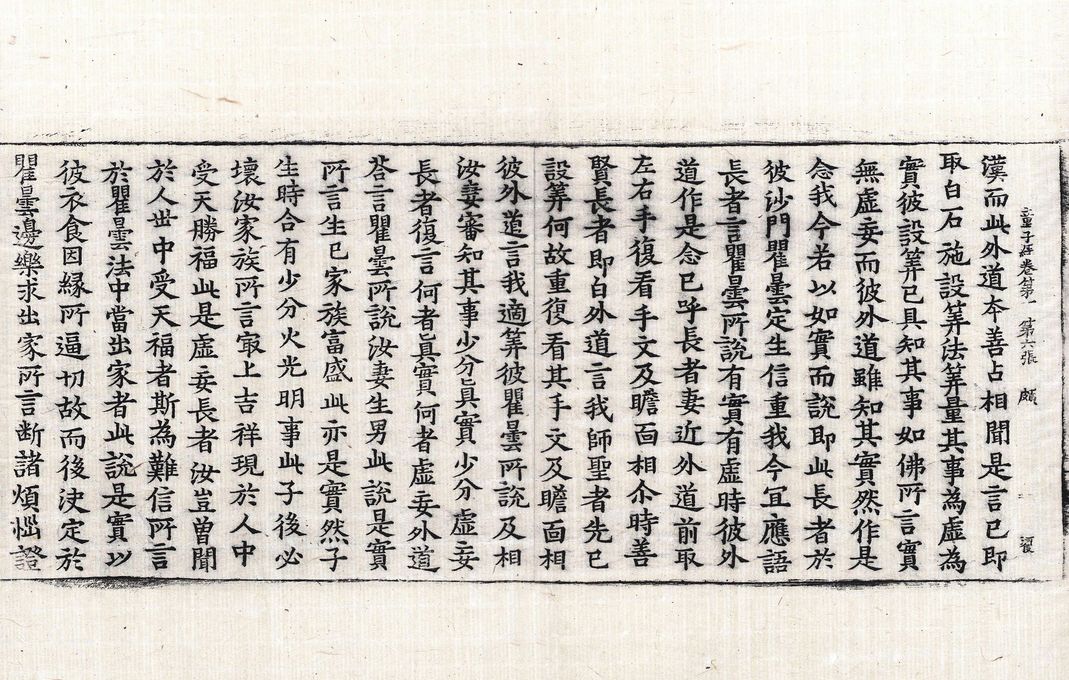 童子經卷第一 第六張 頗
漢而此外道夲善占相聞是言已即
取白石施設筭法筭量其事為虛為
實彼設筭已具知其事如佛所言實
無虛妄而彼外道雖知其實然作是
念我今若以如實而說即此長者於
彼沙門瞿曇定生信重我今冝應語
長者言瞿曇所說有實有虛時彼外
道作是念已呼長者妻近外道前取
左右手復看手文及瞻靣相尒時善
賢長者即白外道言我師聖者先已
設筭何故重復看其手文及瞻靣相
彼外道言我適筭彼瞿曇所說及相
汝妻審知其事少分眞實少分虛妄
長者復言何者眞實何者虛妄外道
荅言瞿曇所說汝妻生男此說是實
所言生已家族富盛此亦是實然子
生時合有少分火光明事此子後必
壞汝家族所言冣上吉祥現於人中
受天勝福此是虛妄長者汝豈曾聞
於人世中受天福者斯為難信所言
於瞿曇法中當出家者此說是實以
彼衣食因緣所逼切故而後決定於
瞿曇邊樂求出家所言断諸煩惱證